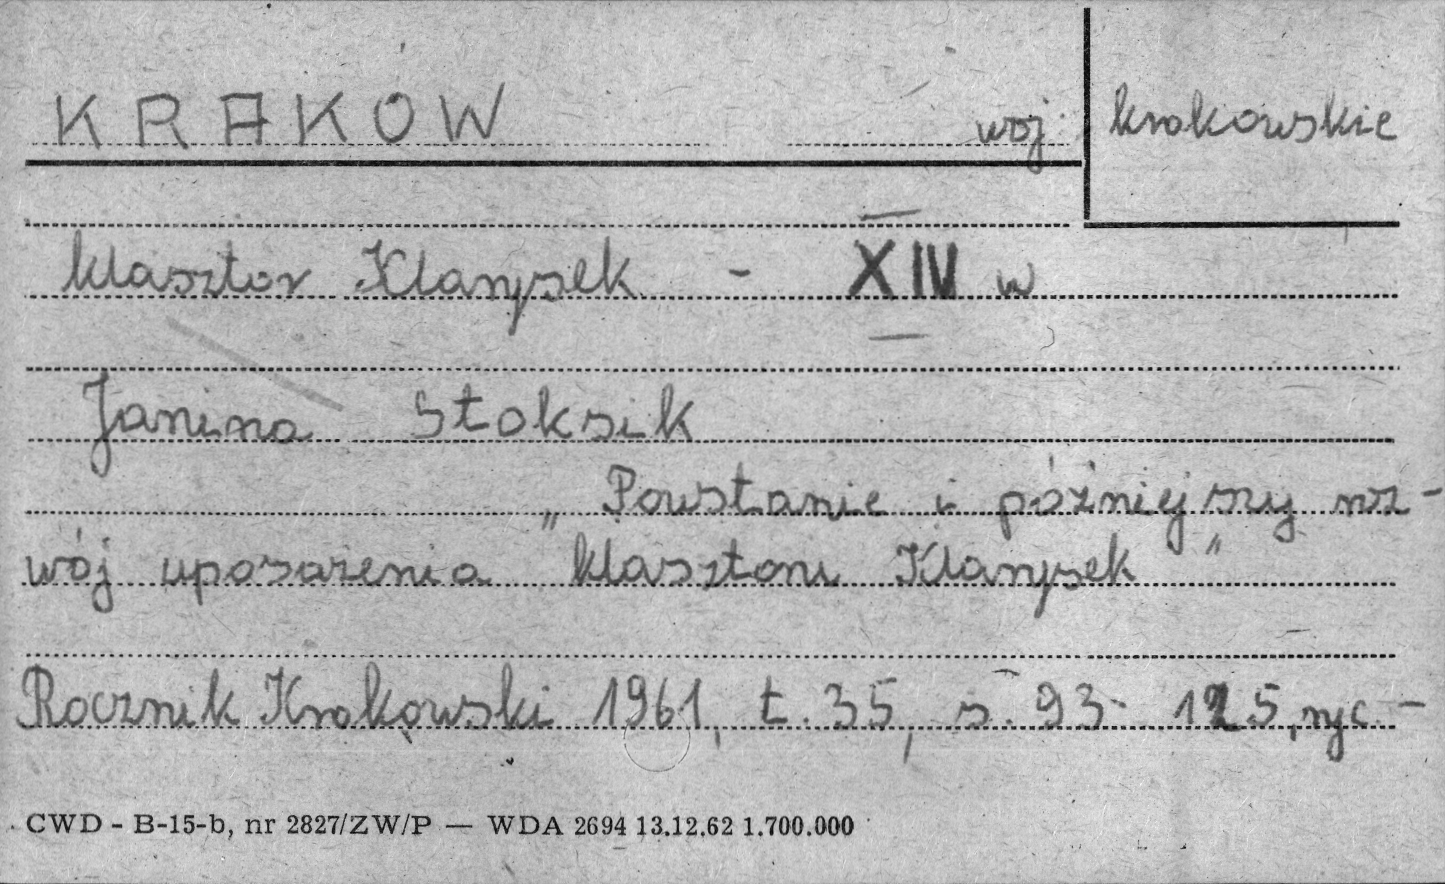 KRAKÓW woj krakowskie
klasztor Klarysek - XIV w
Janina Stoksik
„Powstanie i późniejszy roz-
wój uposażenia klasztoru Klarysek"
Rocznik Krakowski 1961, t. 35, s. 93-125, ryc. -
CWD - B-15-b, nr 2827/ZW/P — WDA 2694 13.12.62 1.700.000